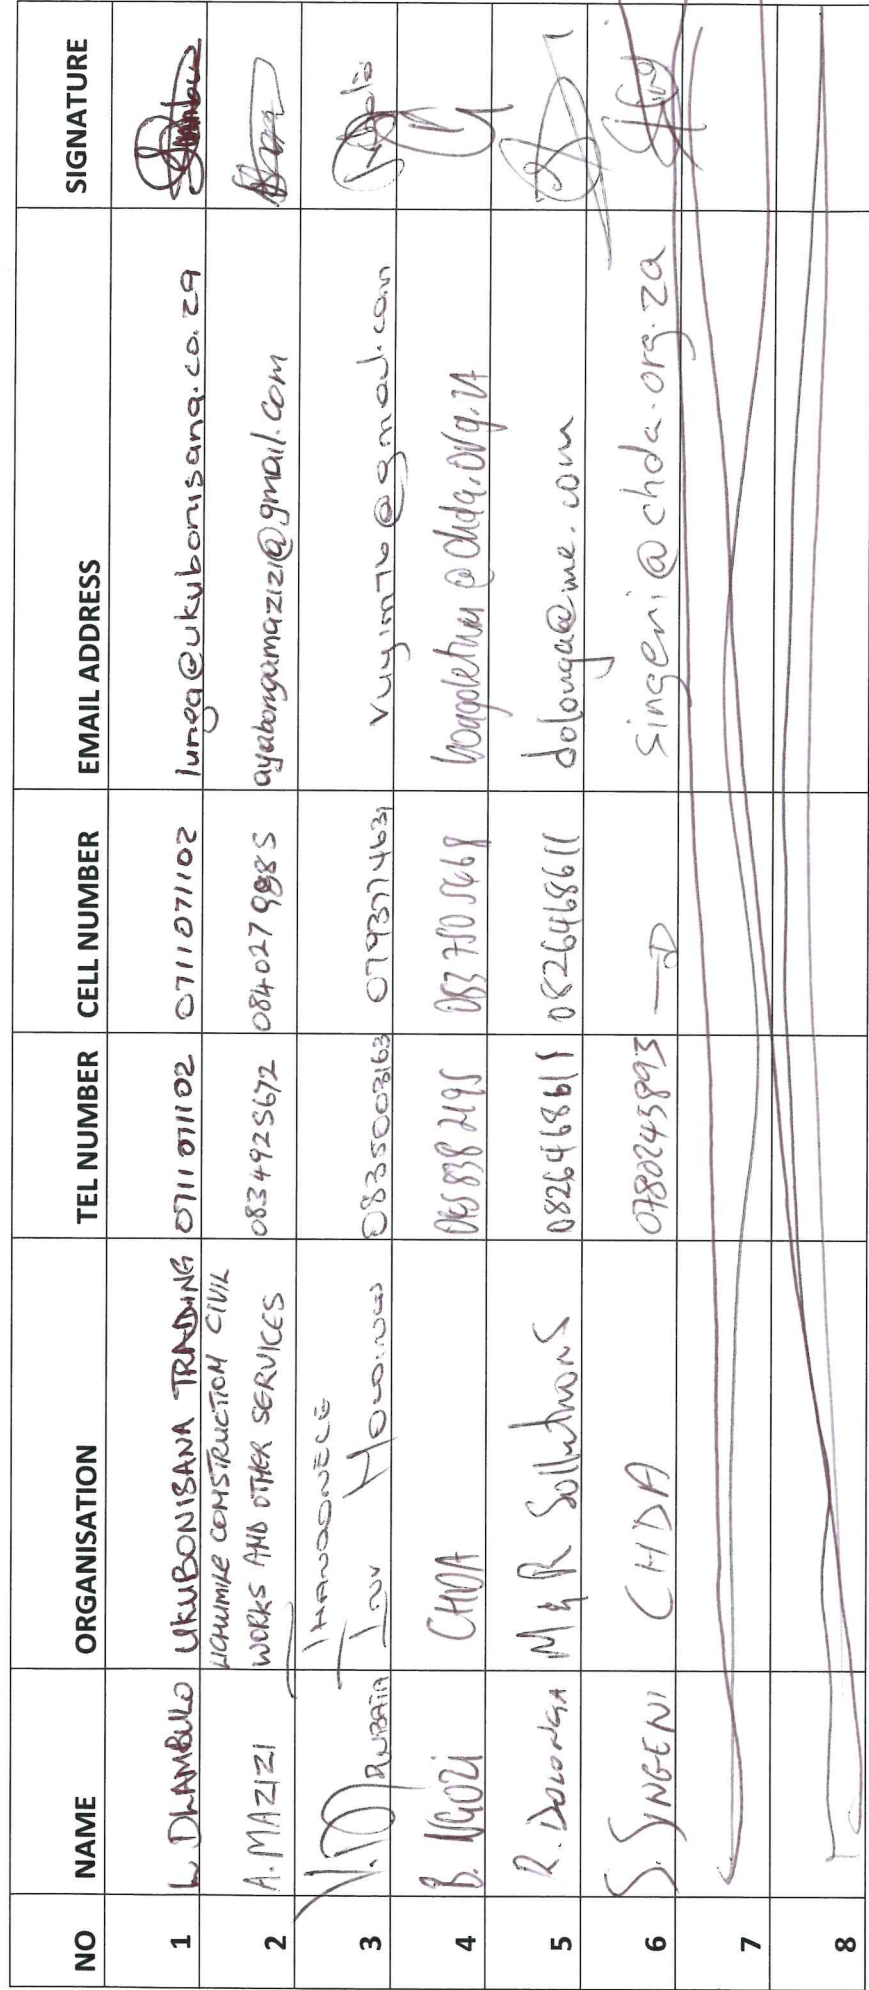 NO NAME ORGANISATION TEL NUMBER CELL NUMBER EMAIL ADDRESS SIGNATURE
1 L. DLAMBULO UKUBONISANA TRADING 0711071102 0711071102 lunga@ukubonisana.co.za
LICHUMILE CONSTRUCTION CIVIL
2 A. MAZIZI WORKS AND OTHER SERVICES 0834925672 0840279885 ayabongamazizi@gmail.com
THANDONECE
3 INV HOLDINGS 0835003163 0793774631 vuyim76@gmail.com
4 B. NGOZI CHDA 045 838 2195 083 750 5468 @chda.org.za
5 R. DOLONGA M & R Sollutions 0826468611 0826468611 dolonga@me.com
6 S. SINGENI CHDA 0780245893 singeni@chda.org.za
7
8